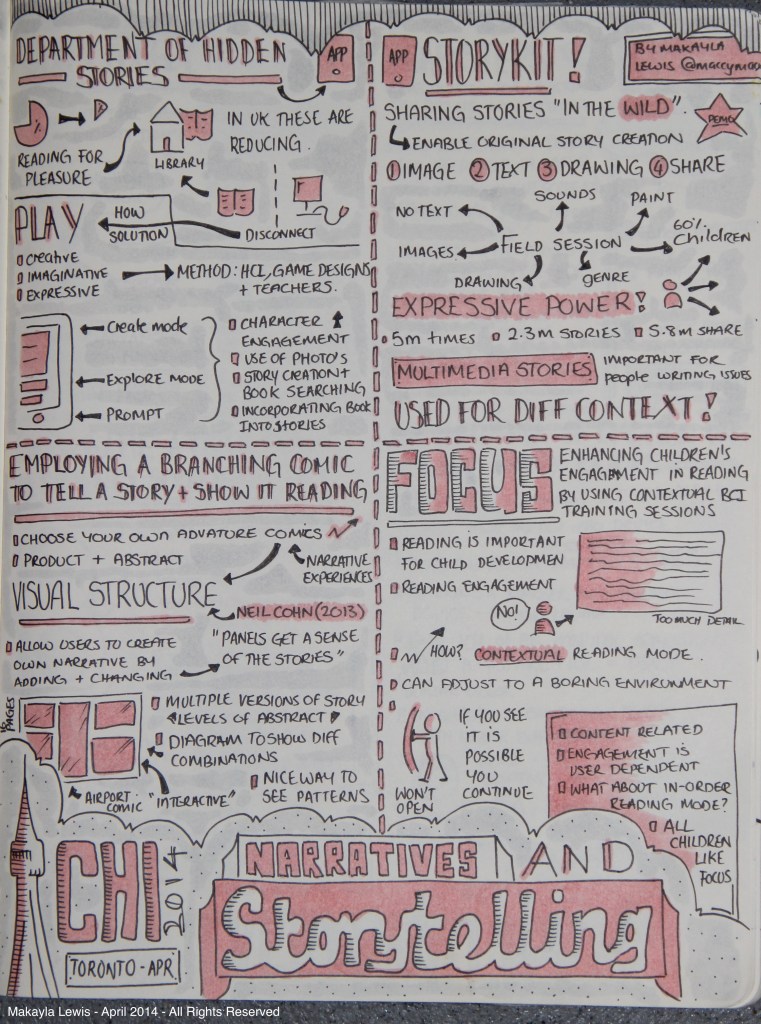 DEPARTMENT OF HIDDEN
STORIES
APP
READING FOR
PLEASURE
LIBRARY
IN UK THESE ARE
REDUCING.
DISCONNECT
HOW
SOLUTION
PLAY
CREATIVE
IMAGINATIVE
EXPRESSIVE
METHOD: HCI, GAME DESIGNS
+ TEACHERS.
CREATE MODE
EXPLORE MODE
PROMPT
CHARACTER
ENGAGEMENT
USE OF PHOTO'S
STORY CREATION +
BOOK SEARCHING
INCORPORATING BOOK
INTO STORIES
APP
STORYKIT!
BY MAKAYLA
LEWIS
SHARING STORIES "IN THE WILD".
DEMO
ENABLE ORIGINAL STORY CREATION
1 IMAGE 2 TEXT 3 DRAWING 4 SHARE
SOUNDS
PAINT
NO TEXT
60%
CHILDREN
IMAGES
FIELD SESSION
DRAWING
GENRE
EXPRESSIVE POWER!
5M TIMES 2.3M STORIES 5.8M SHARE
MULTIMEDIA STORIES
IMPORTANT FOR
PEOPLE WRITING ISSUES
USED FOR DIFF CONTEXT!
EMPLOYING A BRANCHING COMIC
TO TELL A STORY + SHOW IT READING
CHOOSE YOUR OWN ADVATURE COMICS
PRODUCT + ABSTRACT
NARRATIVE
EXPERIENCES
VISUAL STRUCTURE
NEIL COHN (2013)
"PANELS GET A SENSE
OF THE STORIES"
ALLOW USERS TO CREATE
OWN NARRATIVE BY
ADDING + CHANGING
PAGES
MULTIPLE VERSIONS OF STORY
LEVELS OF ABSTRACT
DIAGRAM TO SHOW DIFF
COMBINATIONS
NICE WAY TO
SEE PATTERNS
AIRPORT-
COMIC "INTERACTIVE"
FOCUS
ENHANCING CHILDREN'S
ENGAGEMENT IN READING
BY USING CONTEXTUAL BCI
TRAINING SESSIONS
READING IS IMPORTANT
FOR CHILD DEVELOPMEN
READING ENGAGEMENT
NO!
TOO MUCH DETAIL
HOW? CONTEXTUAL READING MODE.
CAN ADJUST TO A BORING ENVIRONMENT
WON'T
OPEN
IF YOU SEE
IT IS
POSSIBLE
YOU
CONTINUE
CONTENT RELATED
ENGAGEMENT IS
USER DEPENDENT
WHAT ABOUT IN-ORDER
READING MODE?
ALL
CHILDREN
LIKE
FOCUS
CHI
2014
TORONTO - APR
NARRATIVES AND
Storytelling
Makayla Lewis - April 2014 - All Rights Reserved